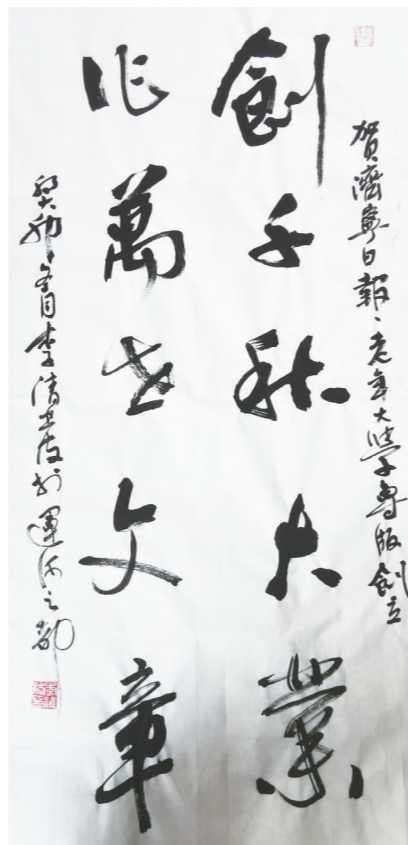 賀濟寧日報、老年大學專版創立
創千秋大業
作萬世文章
癸卯冬月李清於運河之都